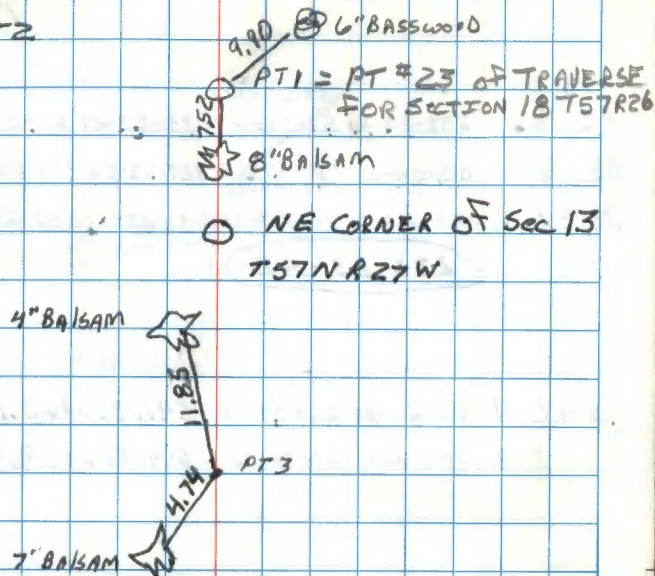 TZ
6" BASSWOOD
9.90
PT1 = PT #23 of TRAVERSE
FOR SECTION 18 T57R26
7.52
8" BAlSAM
NE CORNER OF Sec 13
T57N R27W
4" BAlSAM
11.85
PT3
4.74
7" BAlSAM